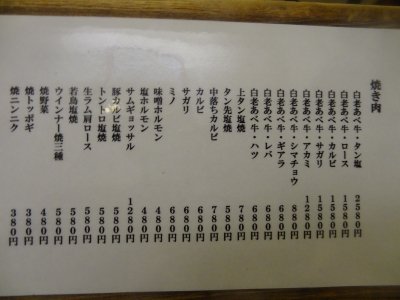 焼き肉
白老あべ牛・タン塩 2580円
白老あべ牛・ロース 1580円
白老あべ牛・カルビ 1580円
白老あべ牛・サガリ 1580円
白老あべ牛・アカミ 1280円
白老あべ牛・シマチョウ 880円
白老あべ牛・ギアラ 680円
白老あべ牛・レバ 680円
白老あべ牛・ハツ 680円
上タン塩焼 780円
タン先塩焼 580円
中落ちカルビ 780円
カルビ 680円
サガリ 680円
ミノ 680円
味噌ホルモン 480円
塩ホルモン 480円
サムギョッサル 1280円
豚カルビ塩焼 580円
トントロ塩焼 580円
生ラム肩ロース 580円
若鳥塩焼 580円
ウインナー焼三種 580円
焼野菜 480円
焼トッポギ 380円
焼ニンニク 380円